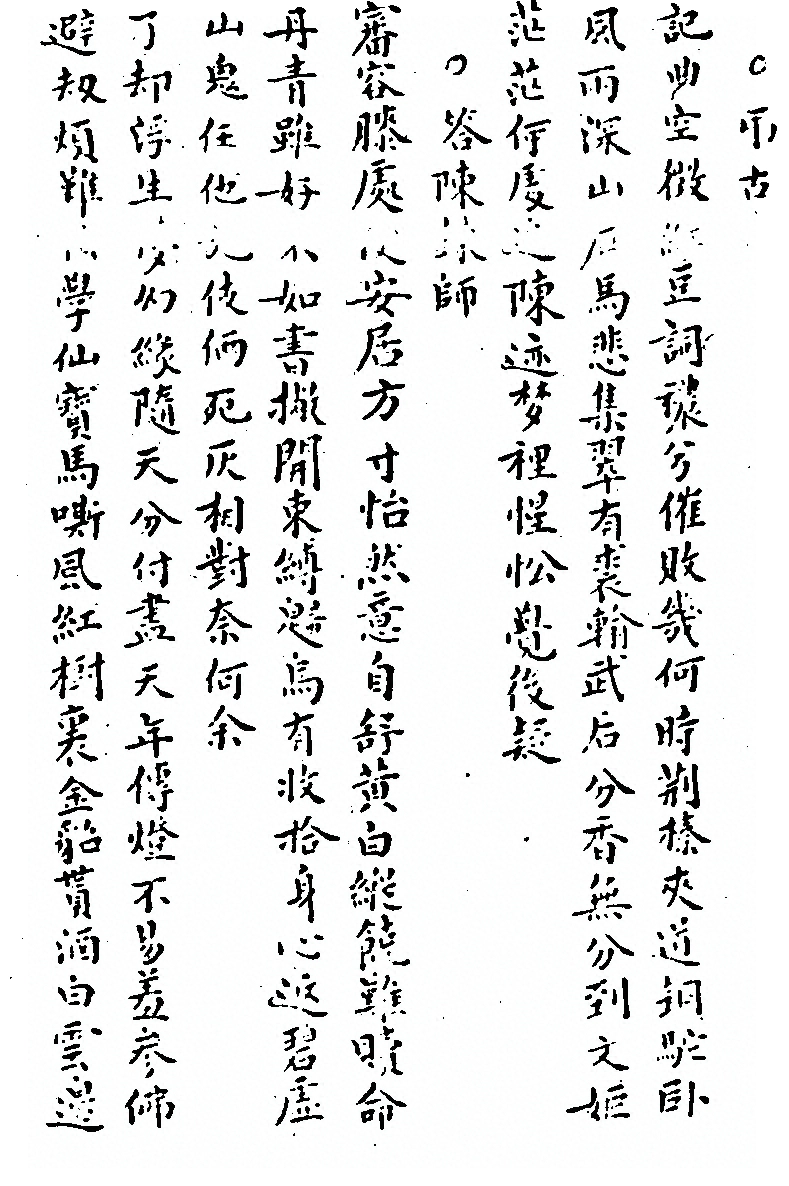 ○吊古
記曲空徵紅豆詞穠兮催敗幾何時荆榛夾道銅駝卧
風雨深山石馬悲集翠有裘翰武后分香無分到文姬
茫茫何處追陳迹梦裡惺忪覺後疑
○答陳師
審容膝處安居方寸怡然意自舒黄白縱饒難贖命
丹青雖好不如書擬開束縛魁烏有收拾身心返碧虚
山鬼任他伎俩死灰相對奈何余
了却浮生幻緣隨天分付盡天年傳燈不易羞参佛
避劫煩難學仙寶馬嘶風紅樹裏金貂貰酒白雲邊